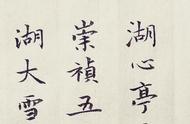 湖心亭
崇禎五
湖大雪